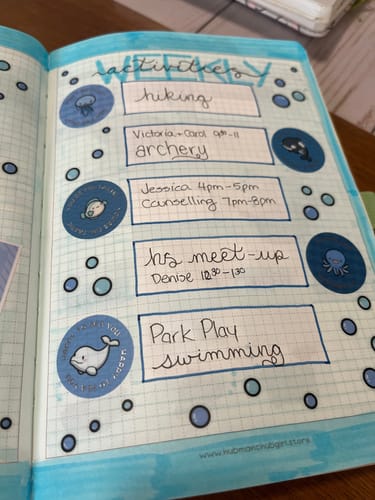 WEEKLY
activities
hiking
Victoria + Carol 9:30-11
archery
Jessica 4pm-5pm
Counselling 7pm-8pm
hs meet-up
Denise 12:30-1:30
Park Play
swimming
www.hubmanchubgirl.store